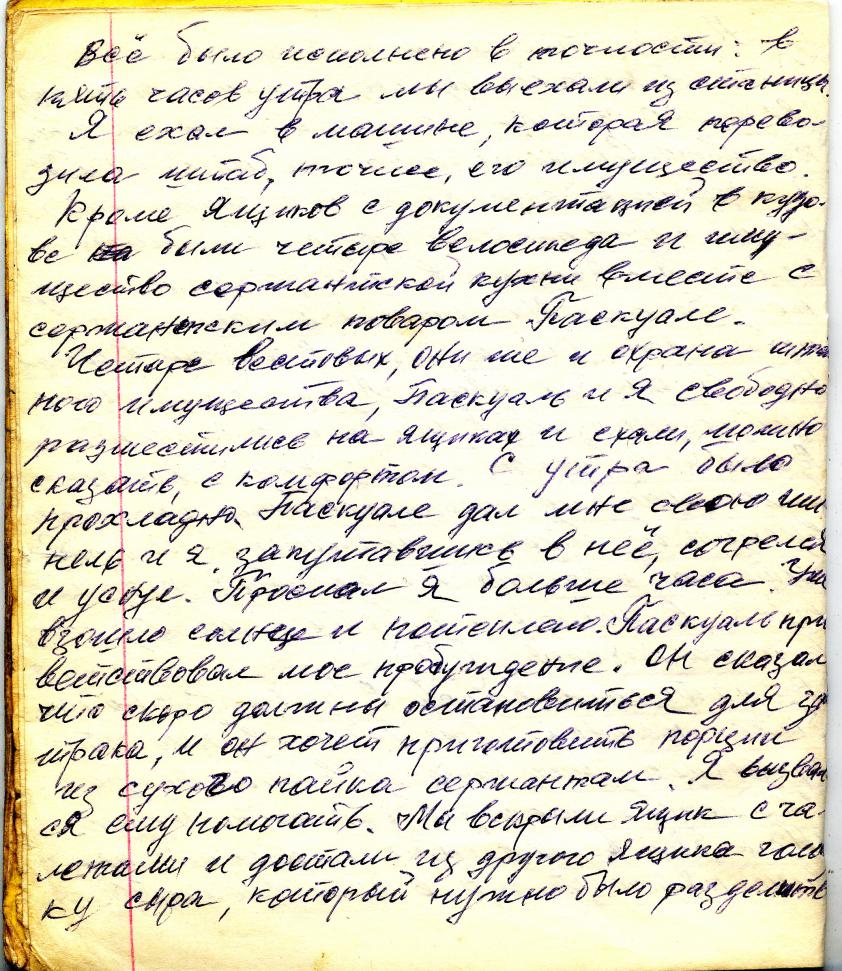 Всё было исполнено в точности: в
пять часов утра мы выехали из станицы.
Я ехал в машине, которая перево-
зила штаб, точнее, его имущество.
Кроме ящиков с документацией в кузо-
ве были четыре велосипеда и иму-
щество сержантской кухни вместе с
сержантским поваром Паскуале.
Четыре вестовых, они же и охрана штаб
ного имущества, Паскуаль и я свободно
разместились на ящиках и ехали, можно
сказать, с комфортом. С утра было
прохладно. Паскуале дал мне свою ши
нель и я, запутавшись в неё, согрелся
и уснул. Проспал я больше часа. Уже
взошло солнце и потеплело. Паскуаль при
ветствовал мое пробуждение. Он сказал
что скоро должны остановиться для за
втрака, и он хочет приготовить порции
из сухого пайка сержантам. Я вызвал
ся ему помогать. Мы вскрыли ящик с га-
летами и достали из другого ящика голо
ку сыра, который нужно было разделить